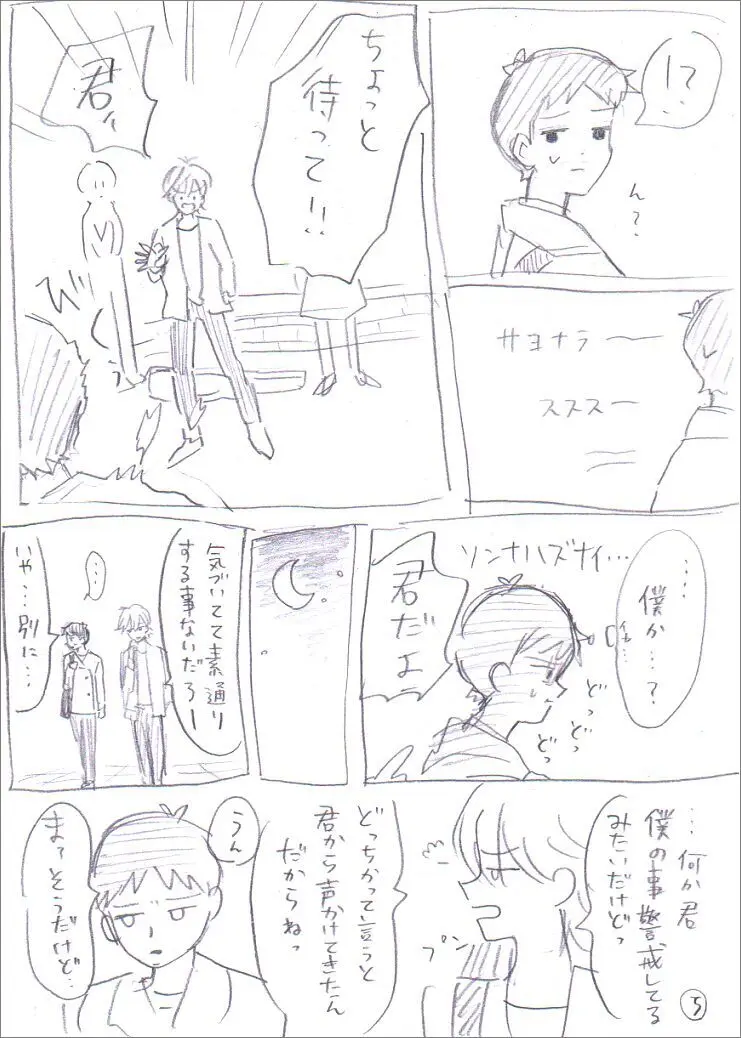 !?
ん?
サヨナラ――
ススス―
ちょっと
待って!!
君、
びくっ
…
僕か…?
ソンナハズナイ…
どっ
どっ
どっ
君だよ
気づいてて素通り
する事ないだろー
…
いや…別に…
…何か君
僕の事警戒してる
みたいだけどっ
プン
どっちかって言うと
君から声かけてきたん
だからねっ
うん
まぁそうだけど…
5